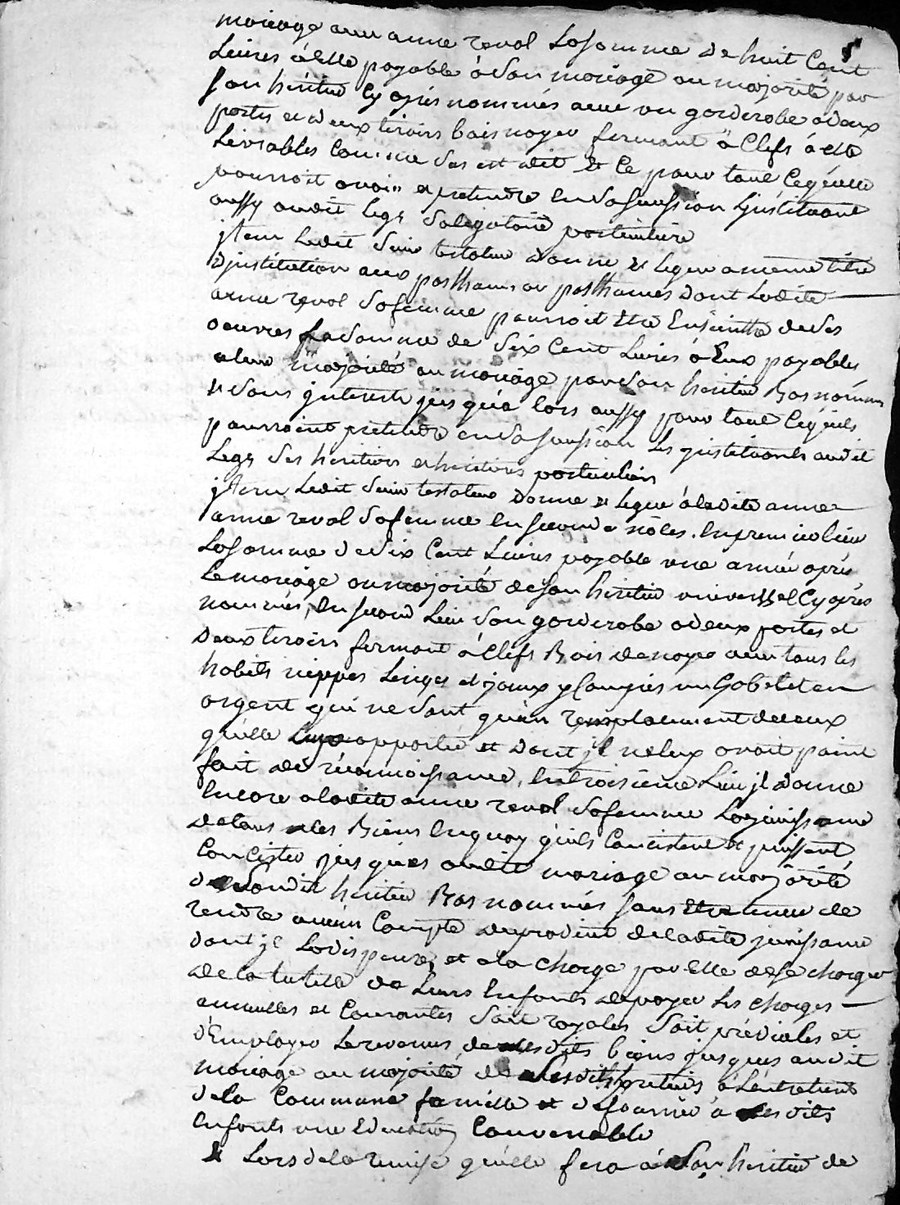 mariage avec anne reval la somme de huit Cent
Livres à elle payable à son mariage ou majorité par
son héritier Cy après nommés avec un garderobe a deux
portes et deux tiroirs bois noyer fermant à Clefs à elle
Livrables Comme sus est dit & Ce pour tout Ce qu'elle
pourroit avoir et pretendre en sa sucssion L'jnstituant
aussy audit legs sa legataire particuliere
jtem Ledit Sieur testateur donne & legue a meme titre
d'jnstitution aux posthume ou posthumes dont Ladite
anne reval sa femme pourroit Etre Enseinte de ses
oeuvres La Somme de Six Cent Livres à Eux payables
a leur majorité ou mariage par son heritier Bas nommé
& sans jnterets jusqu'a lors aussy pour tout Ce qu'ils
pourroint pretendre en sa sucssion Les jnstituants audit
Legs ses heritiers et heritieres particuliers
jtem Ledit Sieur testateur donne & legue à ladite anne
anne reval sa femme En secondes noles. En premier lieu
La somme de Six Cent Livres payable une année après
Le mariage ou majorité de son heritier universel Cy après
nommés, En second Lieu son garderobe a deux portes et
deux tiroirs fermant à Clefs Bois de noyer avec tous les
habits nippes Linges et joaux y Compris un Gobelet en
argent qui ne sont qu'en remplacement de ceux
qu'elle apportés et dont jl ne lux avoit point
fait de réconnoissance, En troisième Lieu jl donne
Encore a ladite anne reval sa femme La jouissance
de tous les Biens En quoy qu'ils Concistent & puissent
Concister jusques audit mariage ou majorité
de Sondit heritier Bas nommés sans Etre tenue de
rendre aucun Compte du produit de ladite jouissance
dont jl La dispence, et a la charge par Elle de se charger
de la tutelle de Leurs Enfants de payer Les charges
annuelles et Courantes Soit royales Soit prediales et
d'Employer Le revenus desdits biens jusques audit
mariage ou majorité de à L'entretient
de la Commune famille et de fournir à sesdits
Enfants une Education Convenable
& Lors de la remise qu'elle fera à Son heritier de